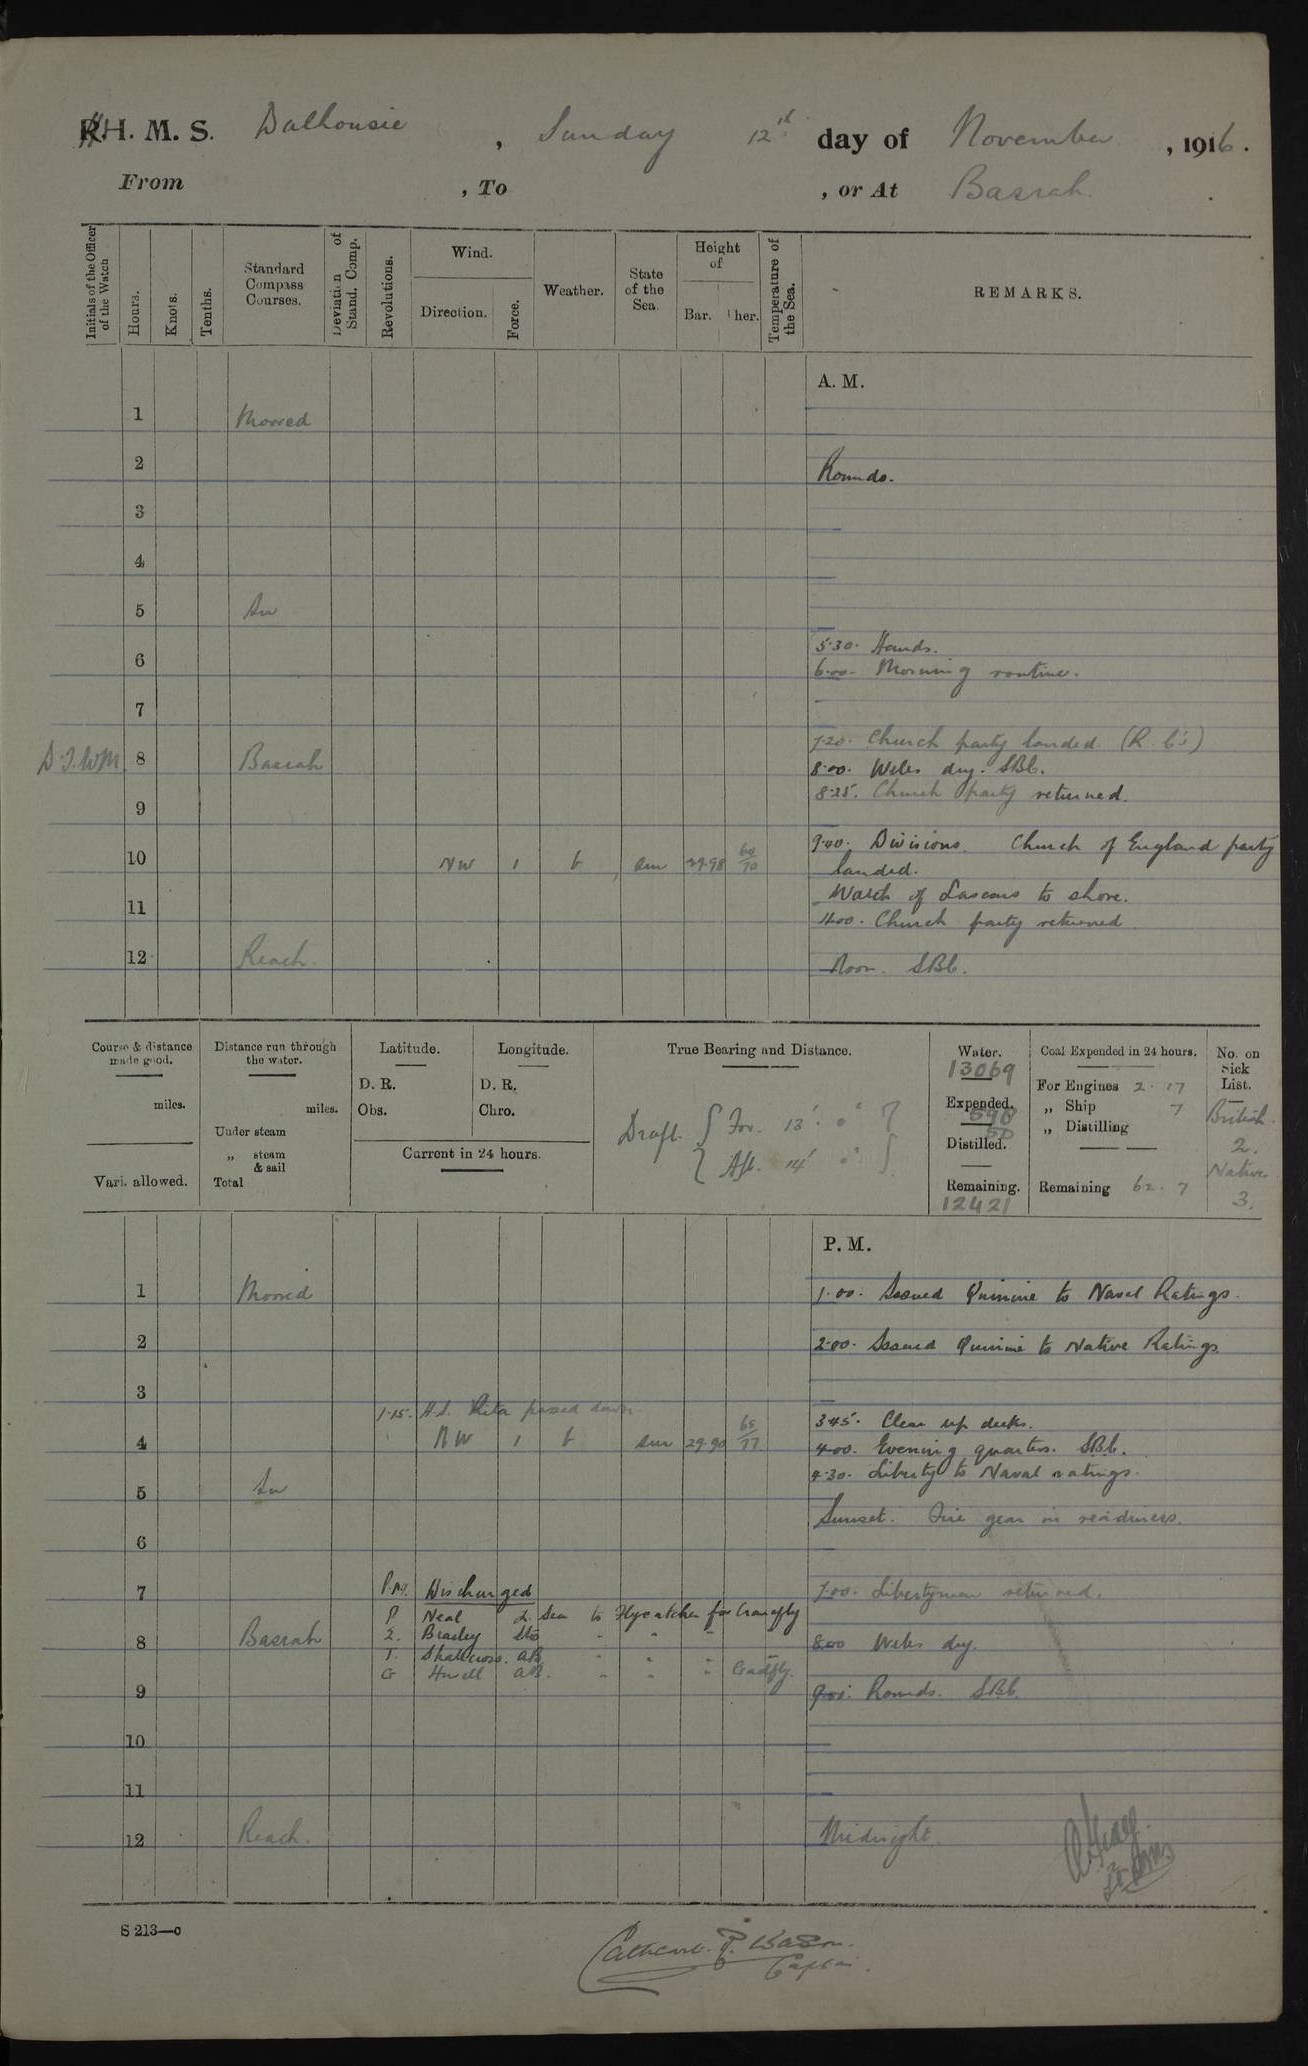 R H. M. S. Dalhousie, Sunday 12th day of November, 1916.
From , To , or At Basrah.
Initials of the Officer of the Watch
Hours.
Knots.
Tenths.
Standard Compass Courses.
Deviation of Stand. Comp.
Revolutions.
Wind.
Direction.
Force.
Weather.
State of the Sea
Height of
Bar.
Ther.
Temperature of the Sea.
REMARKS.
A. M.
1 Moored
2 Rounds.
3
4
5 in
5.30. Hands.
6 6.00. Morning routine.
7
7.20. Church party landed. (R.C's)
8 Basrah 8.00. Weles dry. SBC.
8.25. Church party returned.
9
9.40. Divisions. Church of England party
10 NW 1 b sm 29.98 60/70 landed.
Watch of Lascars to shore.
11 11.00. Church party returned
12 Reach. Noon. SBC.
Course & distance made good.
miles.
Vari. allowed.
Distance run through the water.
miles.
Under steam
„ steam & sail
Total
Latitude.
D. R.
Obs.
Longitude.
D. R.
Chro.
Current in 24 hours.
True Bearing and Distance.
Draft. For. 13' 0"
Aft. 14' 0"
Water.
13069
Expended.
598
50
Distilled.
Remaining.
12421
Coal Expended in 24 hours.
For Engines 2.17
„ Ship 7
„ Distilling
Remaining 62.7
No. on Sick List.
British
2.
Native
3.
P. M.
1 Moored 1.00. Issued Quinine to Naval Ratings.
2 2.00. Issued Quinine to Native Ratings
3
1.15. H.S. Rita passed down
3.45. Clear up decks.
4 NW 1 b sm 29.90 65/77 4.00. Evening quarters. SBC.
4.30. Liberty to Naval ratings.
5 in
Sunset. Fire gear in readiness.
6
7 P.M. Discharged 7.00. Libertymen returned.
P Neal L. Sea to Flycatcher for Cranefly
E. Brasley Sto " " "
8 Basrah 8.00 Weles dry.
T. Shallcross. AB " " "
G Howell AB. " " " Gadfly.
9 9.00. Rounds. SBC.
10
11
12 Reach. Midnight.
S 213—c
Captain.